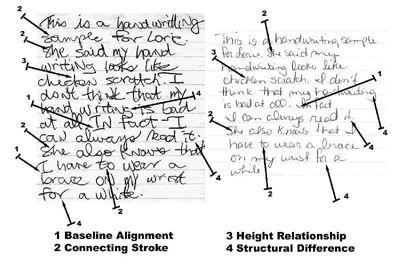 This is a handwriting
sample for Lori.
She said my hand
writing looks like
chicken scratch. I
don't think that my
hand writing is bad
at all. IN fact - I
can always read it.
She also knows that
I have to wear a
brace on my wrist
for a while.
2
2
3
1
2
1
1
4
4
2
4
This is a handwriting sample
for. She said my
handwriting looks like
chicken scratch. I don't
think that my handwriting
is bad at all. In fact
I can always read it
She also knows that I
have to wear a brace
on my wrist for a
while
2
3
1
4
4
2
4
1 Baseline Alignment
2 Connecting Stroke
3 Height Relationship
4 Structural Difference